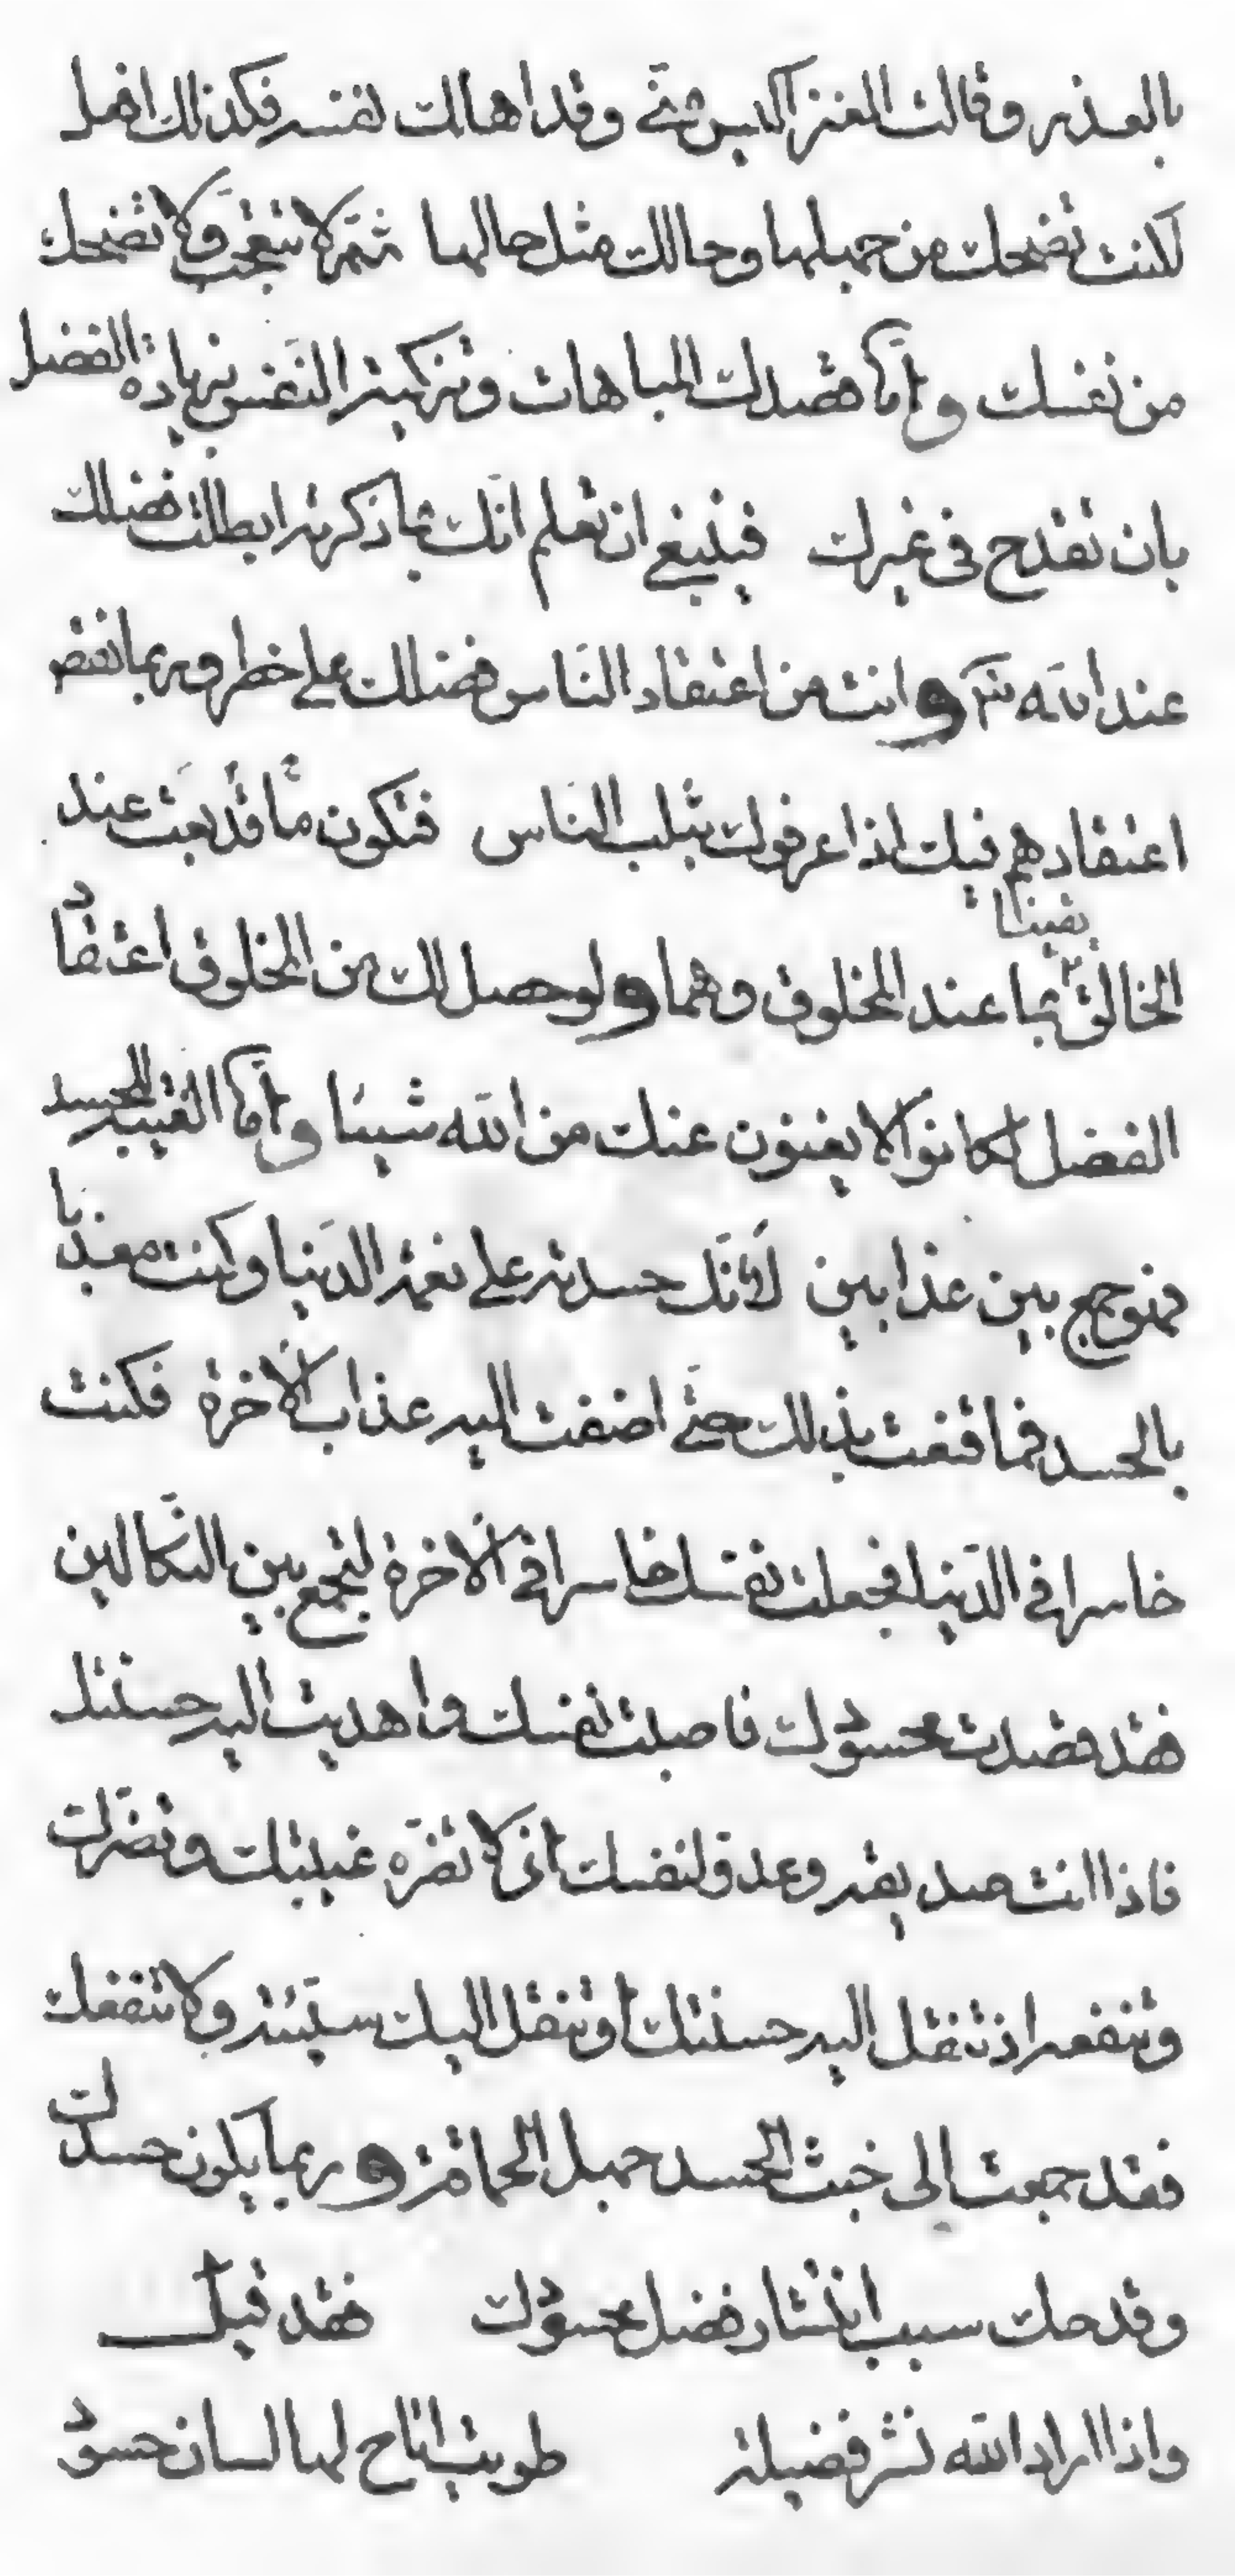 بالعذر وقالت العنز اكيس منّي وقد اهلكت نفسها فكذلك افعل
لكنت تضحك من جهلها وحالك مثل حالها ثمّ لا تتعجّب ولا تضحك
من نفسك وامّا قصدك المباهات وتزكية النّفس بزيادة الفضل
بان تقدح في غيرك فينبغي ان تعلم انّك بما ذكرته ابطلت فضلك
عند الله وانت من اعتقاد النّاس فضلك على خطر وربما نقص
اعتقادهم فيك اذا عرفوك بثلب الناس فتكون ما قد بعت عند
الخالق يقينا بما عند المخلوق وهما ولو حصل لك من المخلوق اعتقاد
الفضل لكانوا لا يغنون عنك من الله شيئا وامّا الغيبة للحسد
فهو جمع بين عذابين لانّك حسدته على نعمة الدّنيا وكنت معذبا
بالحسد فما قنعت بذلك حتّى اضفت اليه عذاب الاخرة فكنت
خاسرا في الدّنيا فجعلت نفسك خاسرا في الاخرة لتجمع بين النّكالين
فقد قصدت محسودك فاصبت نفسك واهديت اليه حسنتك
فاذا انت صديقه وعدو لنفسك اذ لا تضرّه غيبتك وتضرّك
وتنفعه اذ تنقل اليه حسنتك او تنقل اليك سيّئته ولا تنفعك
فقد جمعت الى خبث الحسد جهل الحماقة وربما يكون حسدك
وقدحك سبب انتشار فضل محسودك فقد قيل
واذا اراد الله نشر فضيلة طويت اتاح لها لسان حسود